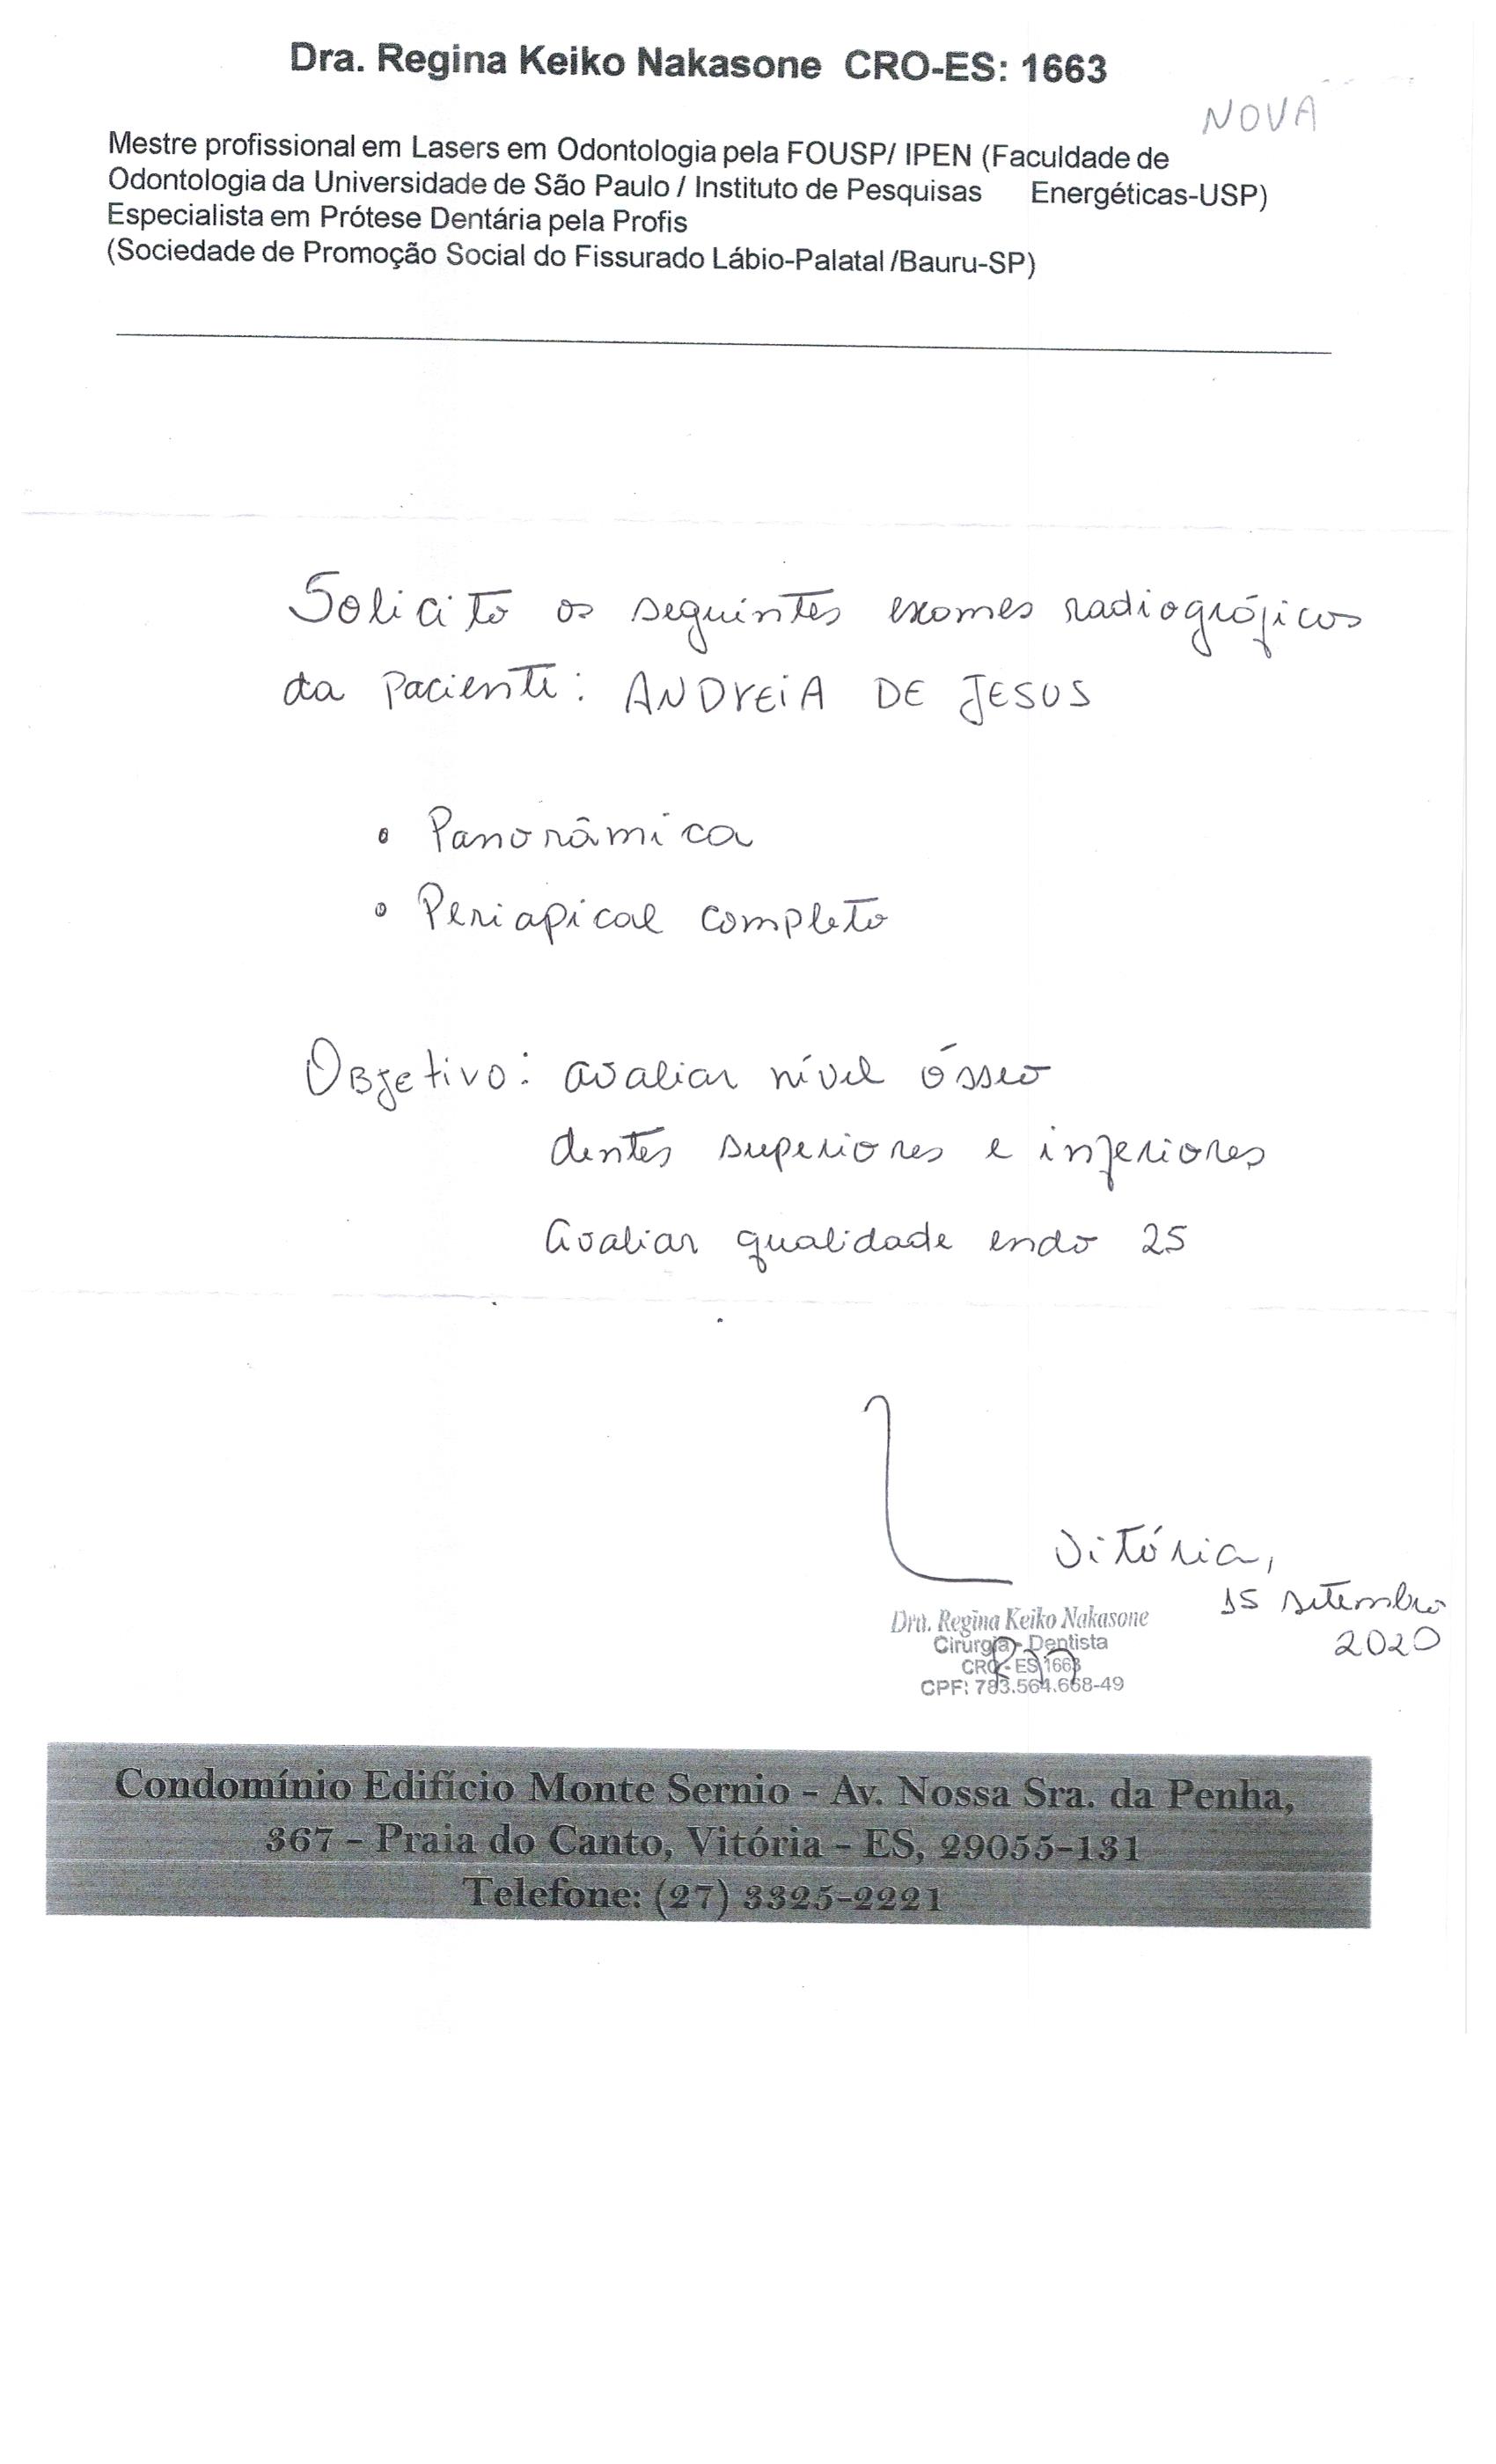 Dra. Regina Keiko Nakasone CRO-ES: 1663
NOVA
Mestre profissional em Lasers em Odontologia pela FOUSP/ IPEN (Faculdade de
Odontologia da Universidade de São Paulo / Instituto de Pesquisas Energéticas-USP)
Especialista em Prótese Dentária pela Profis
(Sociedade de Promoção Social do Fissurado Lábio-Palatal /Bauru-SP)
Solicito os seguintes exames radiográficos
da paciente: ANDREIA DE JESUS
• Panorâmica
• Periapical completo
Objetivo: avaliar nível ósseo
dentes superiores e inferiores
Avaliar qualidade endo 25
Vitória,
15 setembro
2020
Dra. Regina Keiko Nakasone
Cirurgiã-Dentista
CRO-ES 1663
CPF: 783.564.668-49
Condomínio Edifício Monte Sernio - Av. Nossa Sra. da Penha,
367 - Praia do Canto, Vitória - ES, 29055-131
Telefone: (27) 3325-2221